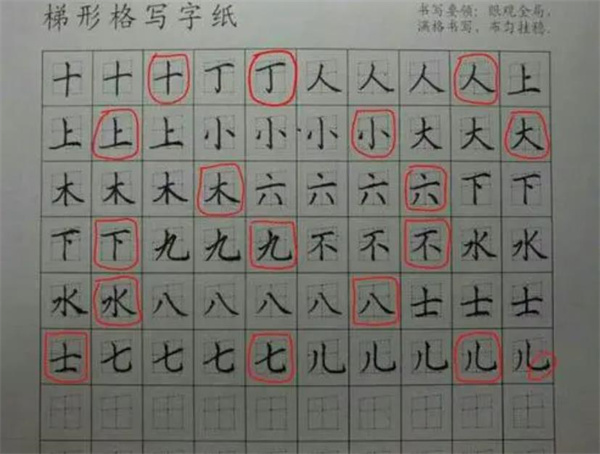 梯形格写字纸
书写要领：眼观全局，
满格书写，布匀挂稳.
十十十丁丁人人人人上
上上上小小小小大大大
木木木木六六六六下下
下下九九九不不不水水
水水八八八八八士士士
士七七七七儿儿儿儿儿